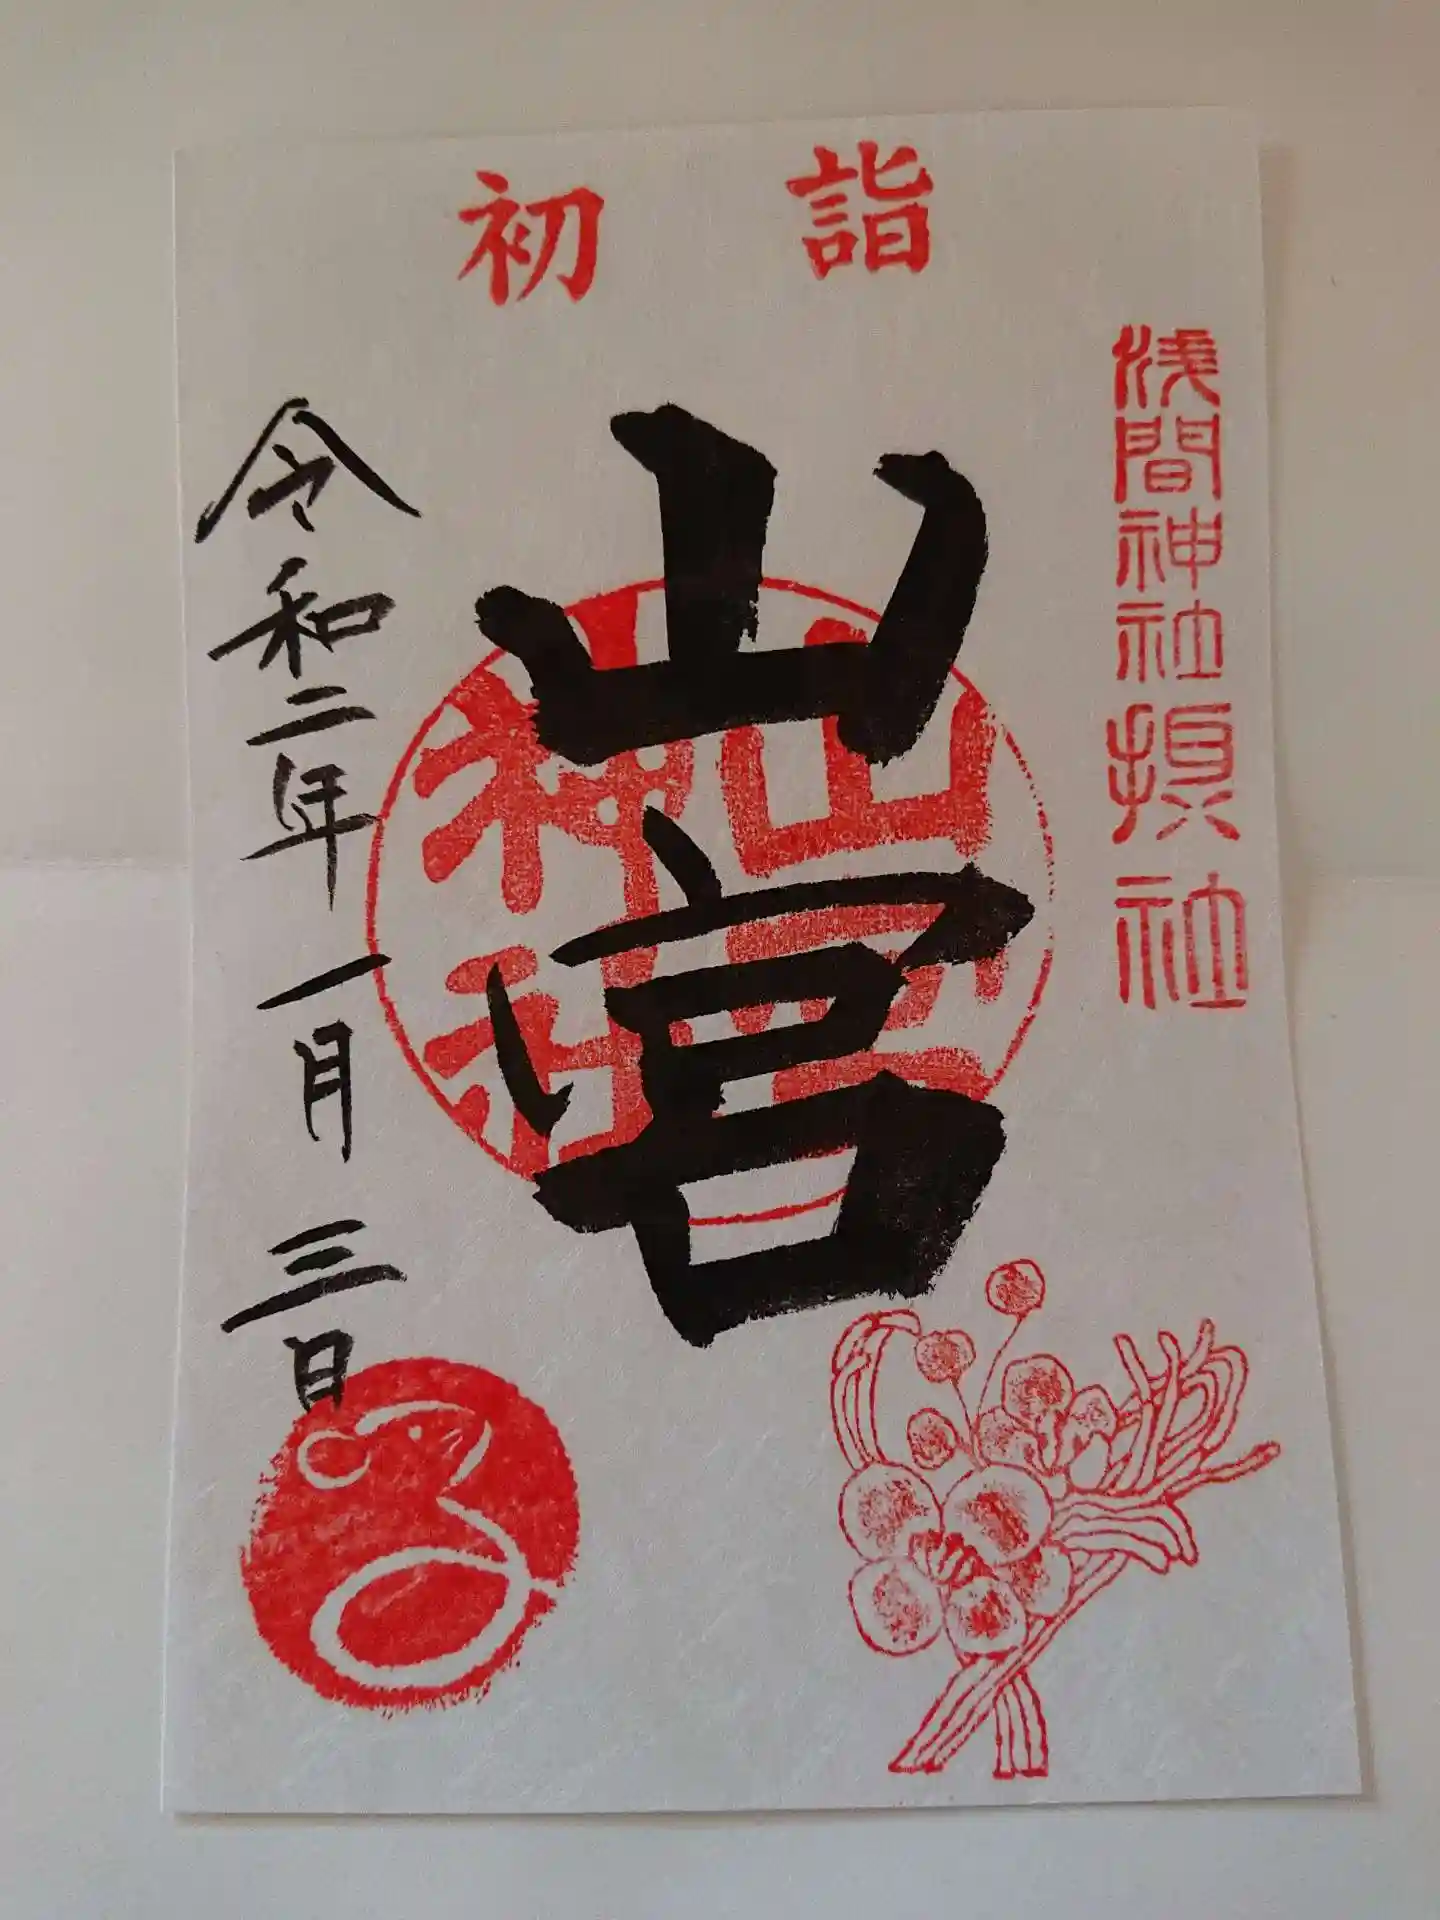 初詣
浅間神社摂社
山宮
山宮神社
令和二年一月三日